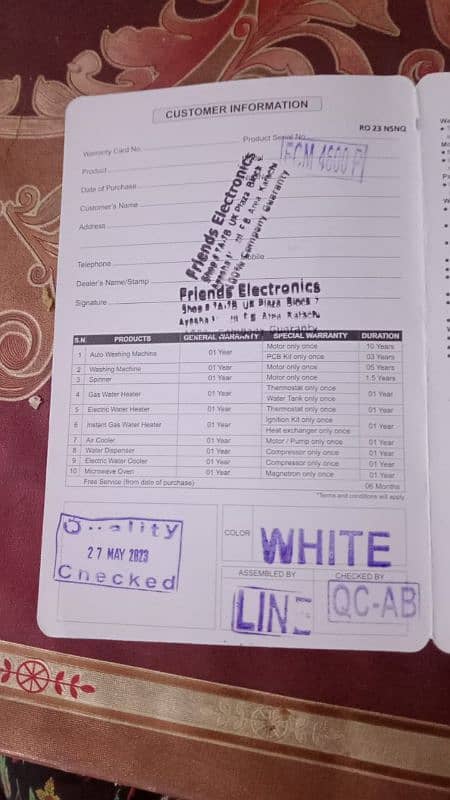 CUSTOMER INFORMATION
RO 23 NSNQ
Warranty Card No.
Product Serial No.
Product
ECM 4600 F
Date of Purchase
Customer's Name
Address
Friends Electronics
UK Plaza Block 7
F B Area Karachi
100% Company Guaranty
Telephone
Mobile
Dealer's Name/Stamp
Friends Electronics
Shop # 7A/7B UK Plaza Block 7
F B Area Karachi
Company Guaranty
Signature
S.N. PRODUCTS GENERAL WARRANTY SPECIAL WARRANTY DURATION
1 Auto Washing Machine 01 Year Motor only once 10 Years
PCB Kit only once 03 Years
2 Washing Machine 01 Year Motor only once 05 Years
3 Spinner 01 Year Motor only once 1.5 Years
4 Gas Water Heater 01 Year Thermostat only once 01 Year
Water Tank only once
5 Electric Water Heater 01 Year Thermostat only once 01 Year
6 Instant Gas Water Heater 01 Year Ignition Kit only once 01 Year
Heat exchanger only once
7 Air Cooler 01 Year Motor / Pump only once 01 Year
8 Water Dispenser 01 Year Compressor only once 01 Year
9 Electric Water Cooler 01 Year Compressor only once 01 Year
10 Microwave Oven 01 Year Magnetron only once 01 Year
Free Service (from date of purchase) 06 Months
*Terms and conditions will apply
Quality
27 MAY 2023
Checked
COLOR WHITE
ASSEMBLED BY CHECKED BY
LINE QC-AB